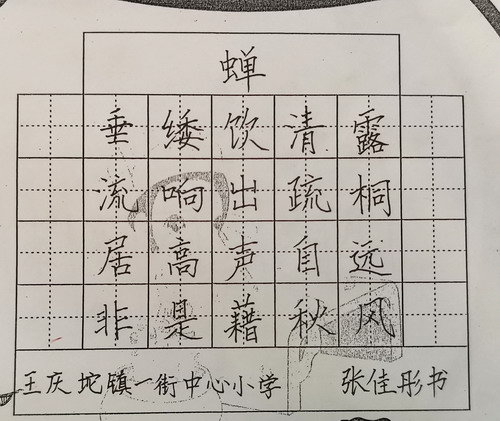 蝉
垂緌饮清露
流响出疏桐
居高声自远
非是藉秋风
王庆坨镇一街中心小学 张佳彤书